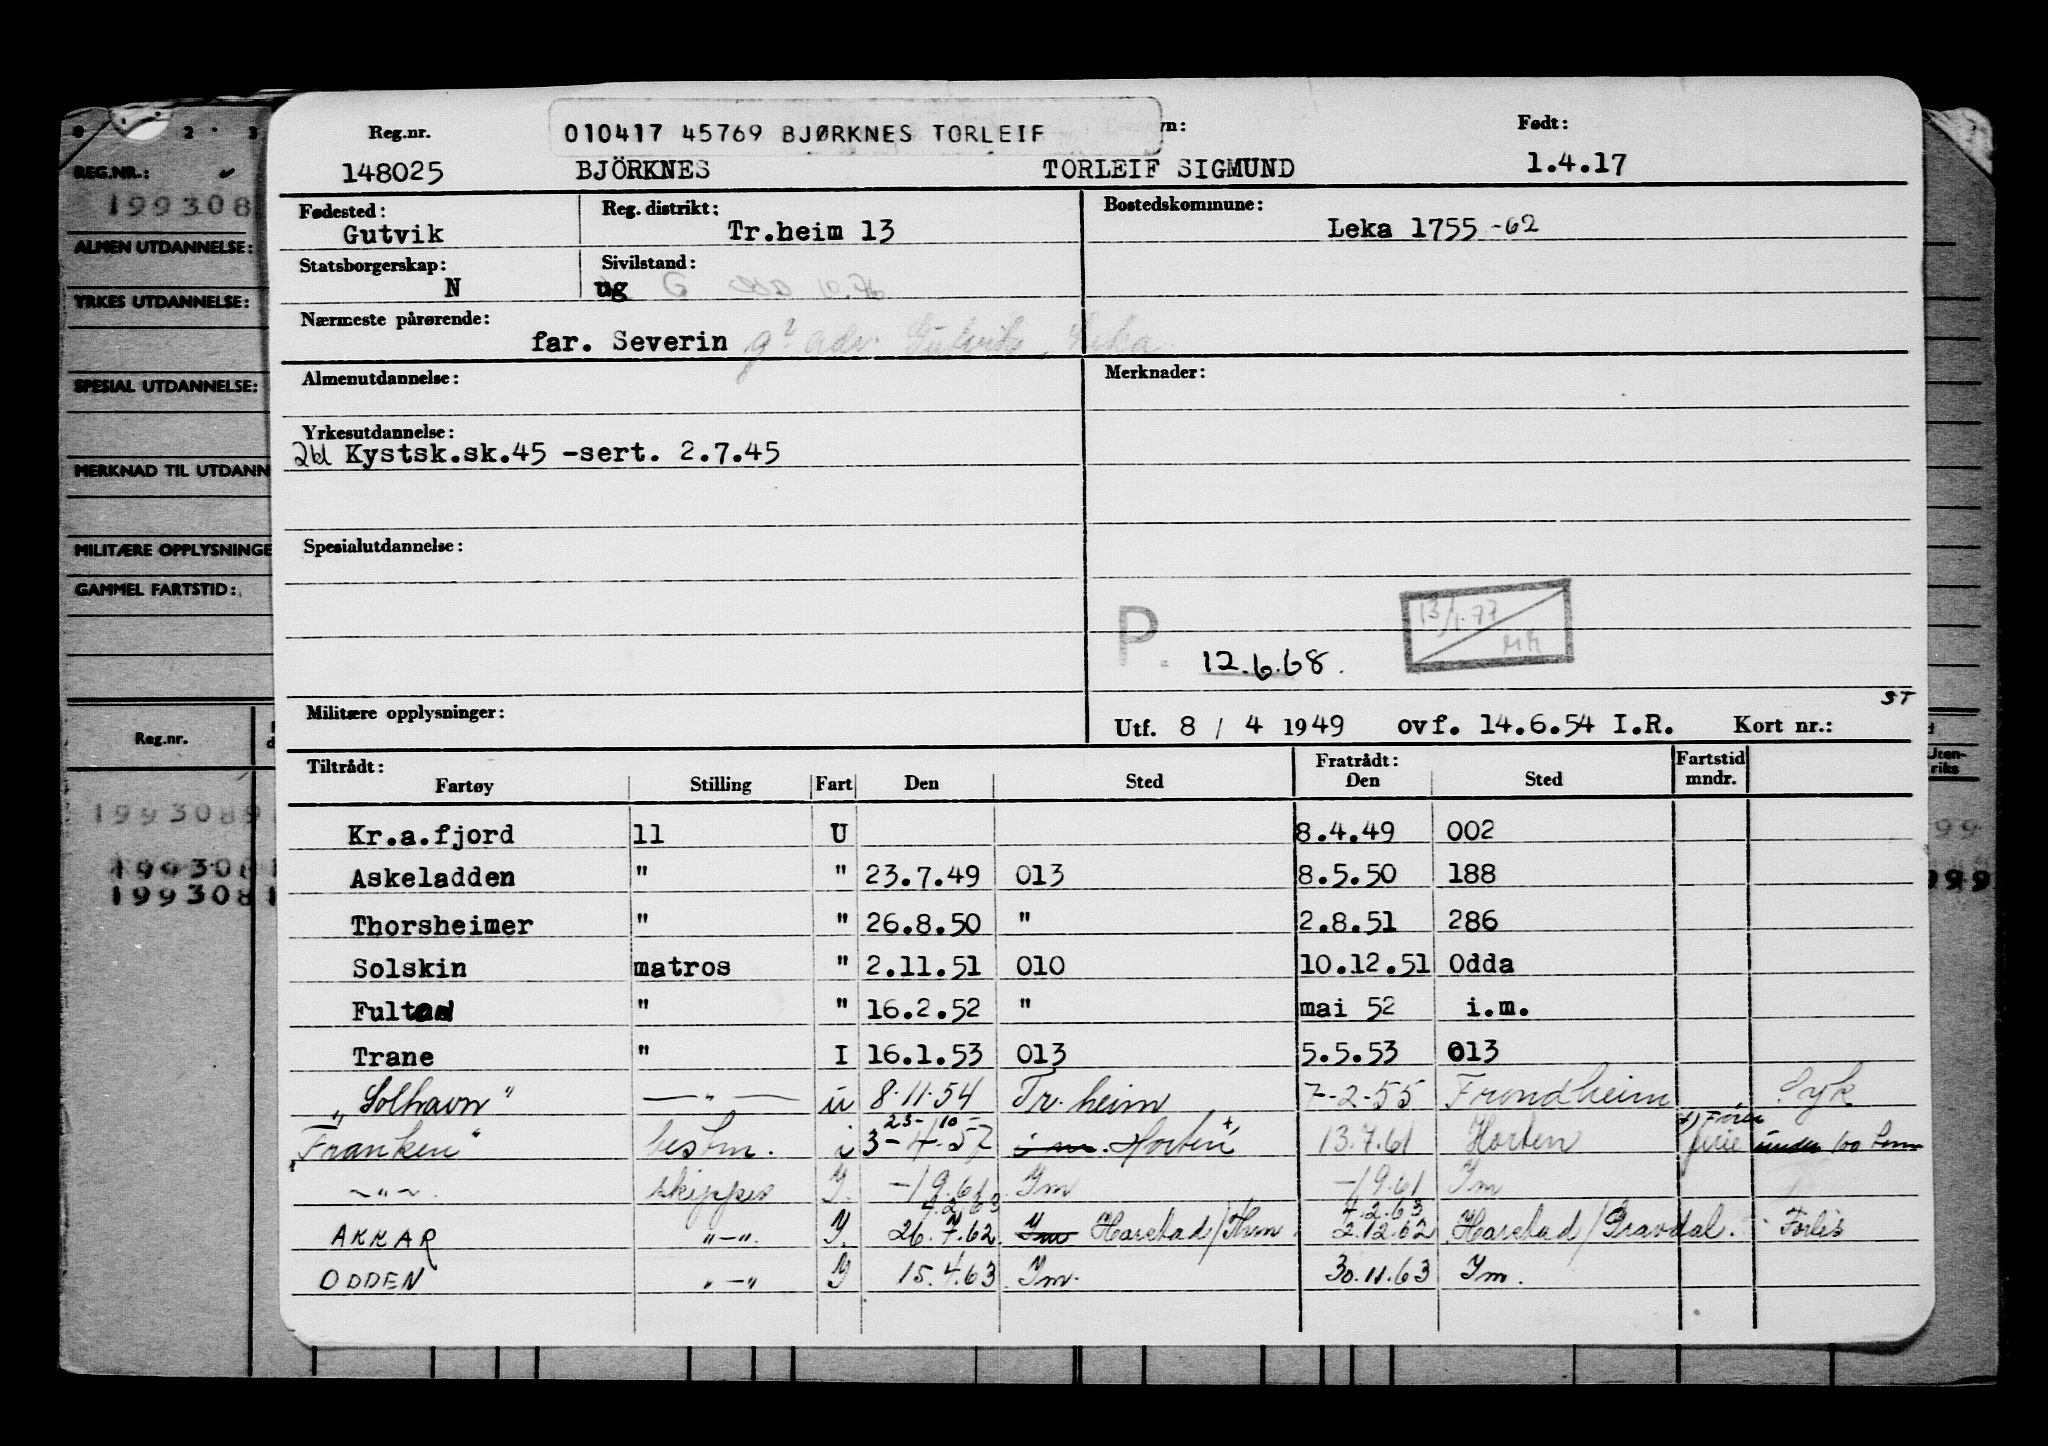 Reg.nr. 010417 45769 BJØRKNES TORLEIF vn: Født:
148025 BJÖRKNES TORLEIF SIGMUND 1.4.17
Fødested: Gutvik Reg. distrikt: Tr.heim 13 Bostedskommune: Leka 1755 -62
Statsborgerskap: N Sivilstand: ug G
Nærmeste pårørende: far. Severin adr. Gutvik, Leka
Almenutdannelse: Merknader:
Yrkesutdannelse:
2kl Kystsk.sk.45 -sert. 2.7.45
Spesialutdannelse:
P. 13/1.77
12.6.68.
ST
Militære opplysninger: Utf. 8 / 4 1949 ovf. 14.6.54 I.R. Kort nr.:
Tiltrådt: Fratrådt: Fartstid
Fartøy Stilling Fart Den Sted Den Sted mndr.
Kr.a.fjord ll U 8.4.49 002
Askeladden " " 23.7.49 013 8.5.50 188
Thorsheimer " " 26.8.50 " 2.8.51 286
Solskin matros " 2.11.51 010 10.12.51 Odda
Fulton " " 16.2.52 " mai 52 i.m.
Trane " I 16.1.53 013 5.5.53 013
"Solhavn" —"— u 8.11.54 Tr.heim 7-2-55 Trondheim Syk
23-10-
"Franken" bestm. i 3-4-57 i m. Horten + 13.7.61 Horten under 100 tonn
~"~. skipper Y. -/9.61 Ym -/9.61 Ym
4.2.63 4.2.63
AKKAR "-". Y. 26.7.62. Ym Harstad/ 2.12.62 Harstad/Gravdal. Forlis
ODDEN "-" Y 15.4.63 Ym. 30.11.63 Ym.
2 3
REG.NR.:
199308
ALMEN UTDANNELSE:
YRKES UTDANNELSE:
SPESIAL UTDANNELSE:
MERKNAD TIL UTDANN
MILITÆRE OPPLYSNINGE
GAMMEL FARTSTID:
Reg.nr.
Uten-
riks
1993089
199308
1993081
99
999